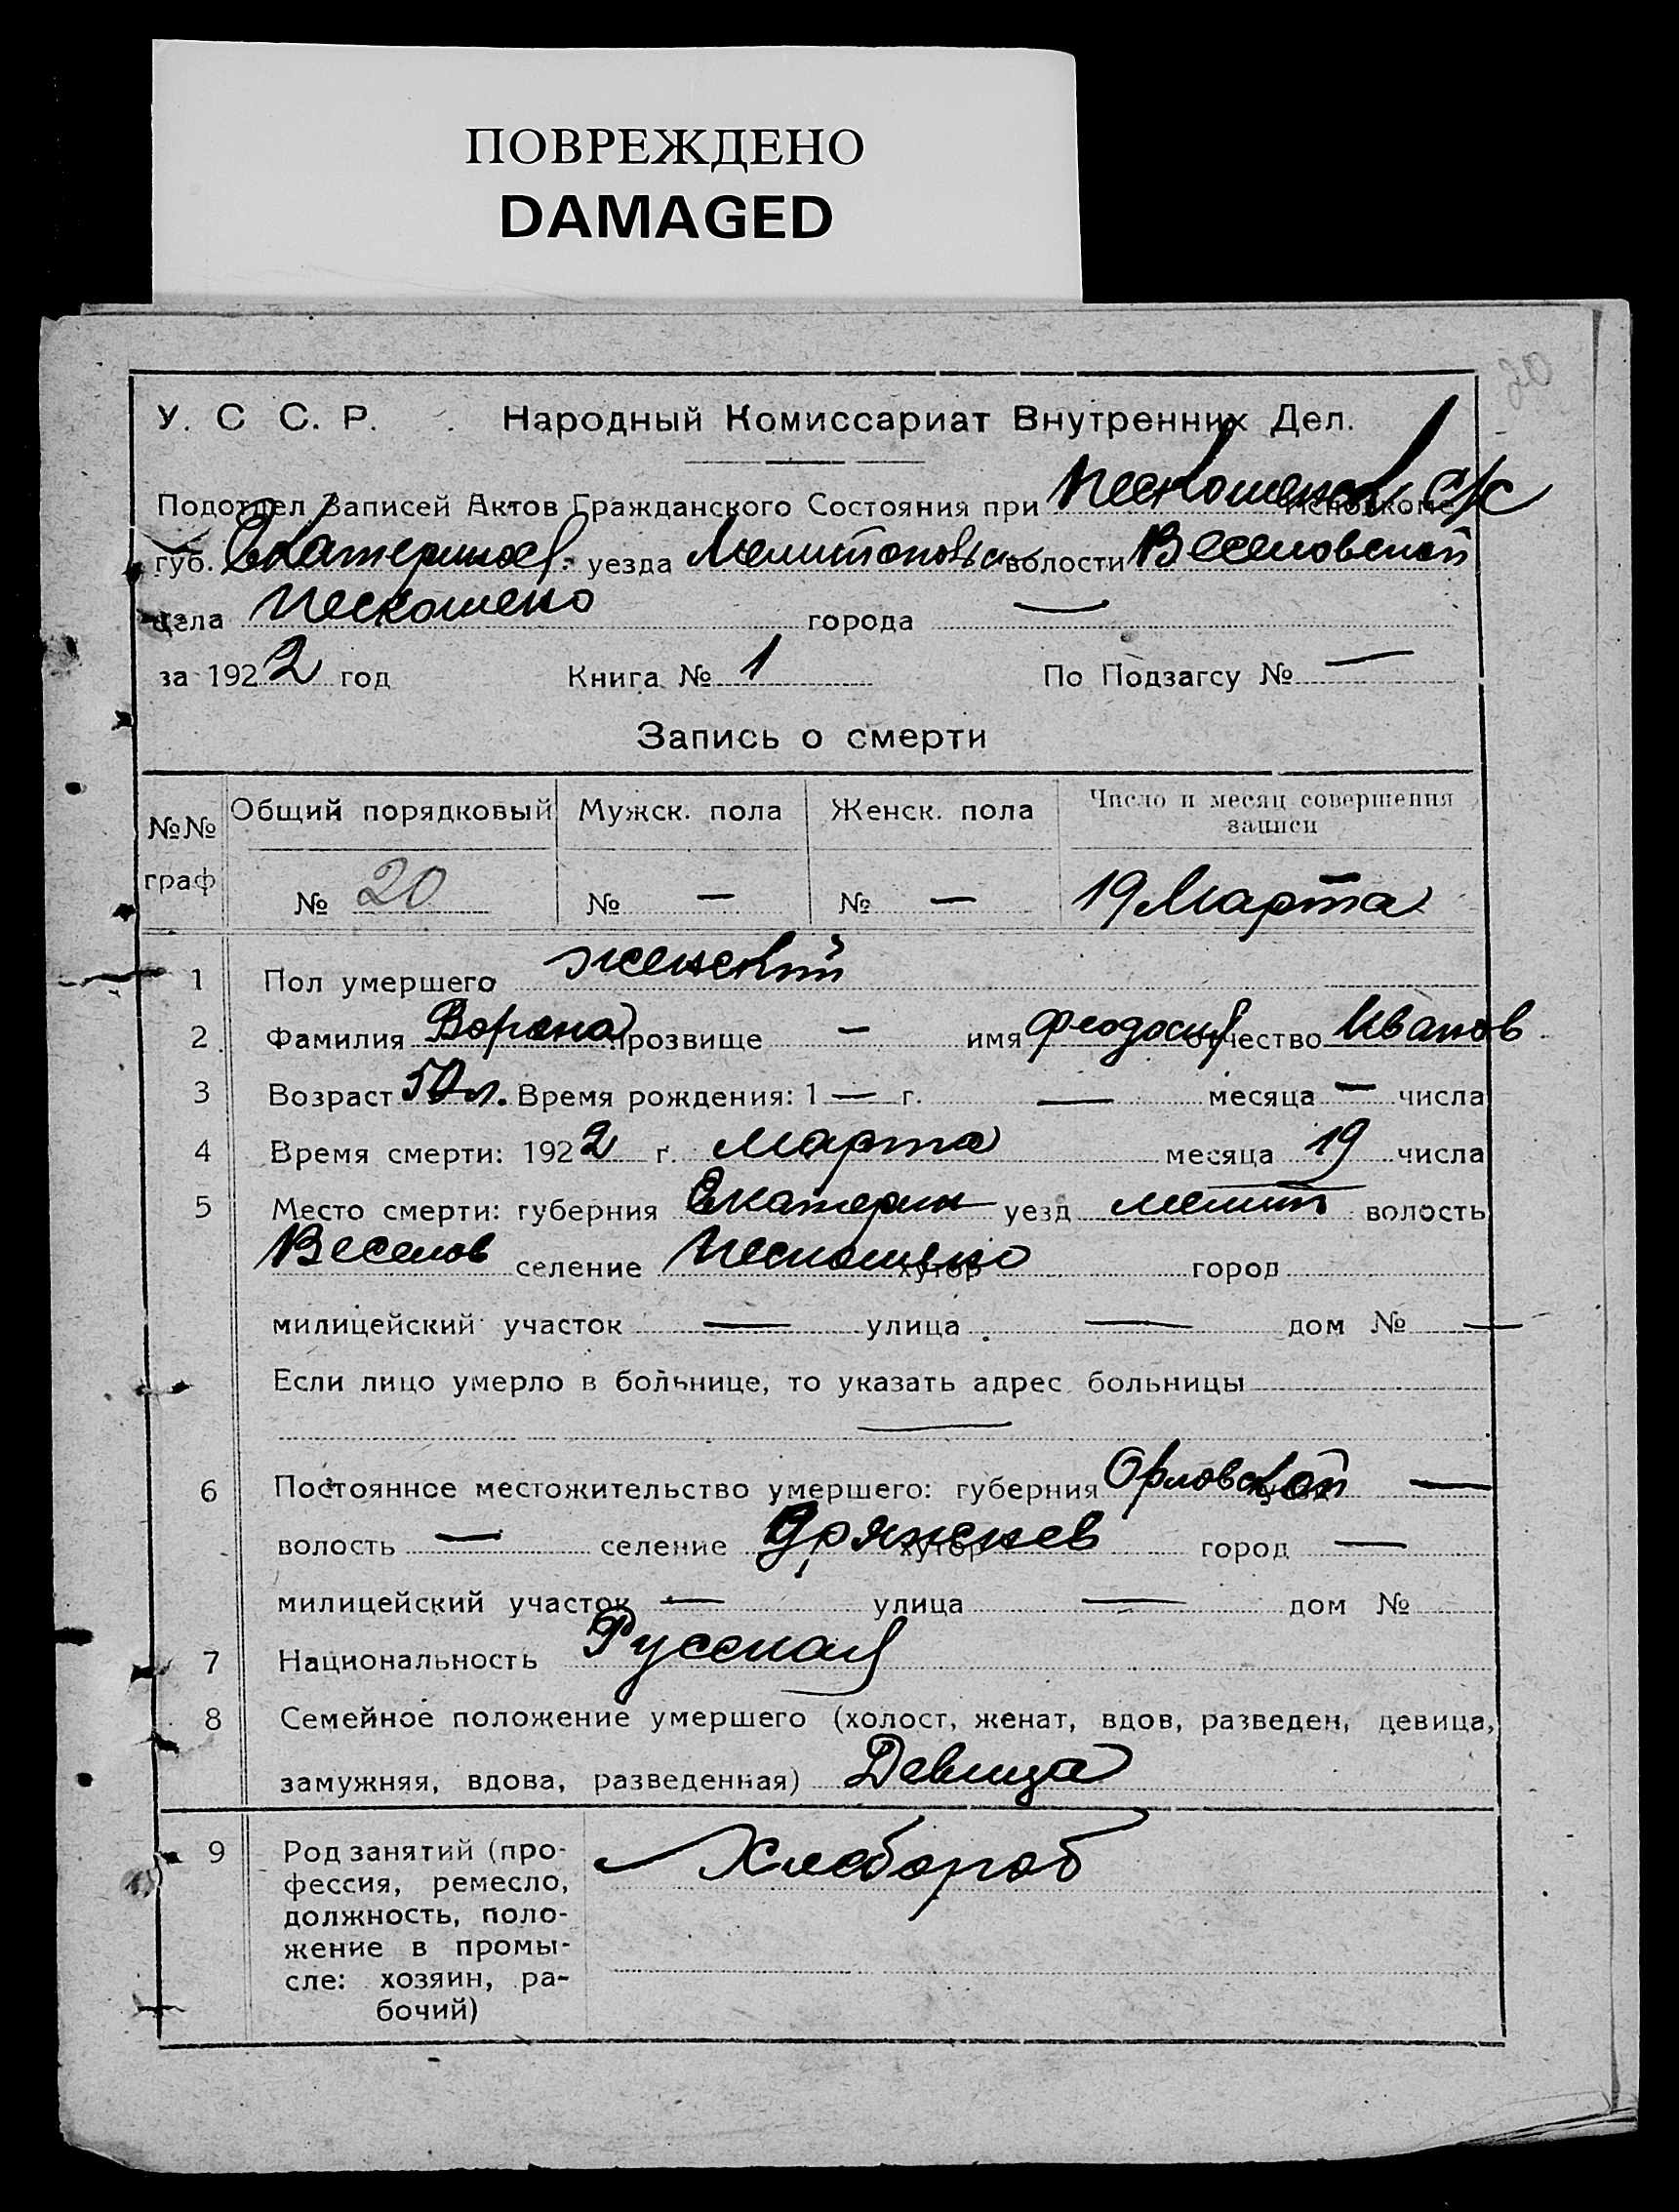 ПОВРЕЖДЕНО
DAMAGED
У. С С. Р. Народный Комиссариат Внутренних Дел.
Подотдел Записей Актов Гражданского Состояния при Пескошенск Исполкоме с/с
губ. Екатеринос. уезда Мелитопольс волости Веселовской
села Пескошено города —
за 1922 год Книга № 1 По Подзагсу № —
Запись о смерти
№№ граф Общий порядковый Мужск. пола Женск. пола Число и месяц совершения записи
№ 20 № — № — 19 Марта
1 Пол умершего женский
2 Фамилия Ворона прозвище — имя Феодосия отчество Иванов
3 Возраст 50 л. Время рождения: 1 — г. — месяца — числа
4 Время смерти: 1922 г. марта месяца 19 числа
5 Место смерти: губерния Екатерин уезд мелит волость
Веселов селение Пескошено хутор город
милицейский участок — улица — дом № —
Если лицо умерло в больнице, то указать адрес больницы
—
6 Постоянное местожительство умершего: губерния Орловской —
волость — селение хутор город —
милицейский участок — улица — дом №
7 Национальность Русская
8 Семейное положение умершего (холост, женат, вдов, разведен, девица,
замужняя, вдова, разведенная) Девица
9 Род занятий (про- Хлебороб
фессия, ремесло,
должность, поло-
жение в промы-
сле: хозяин, ра-
бочий)